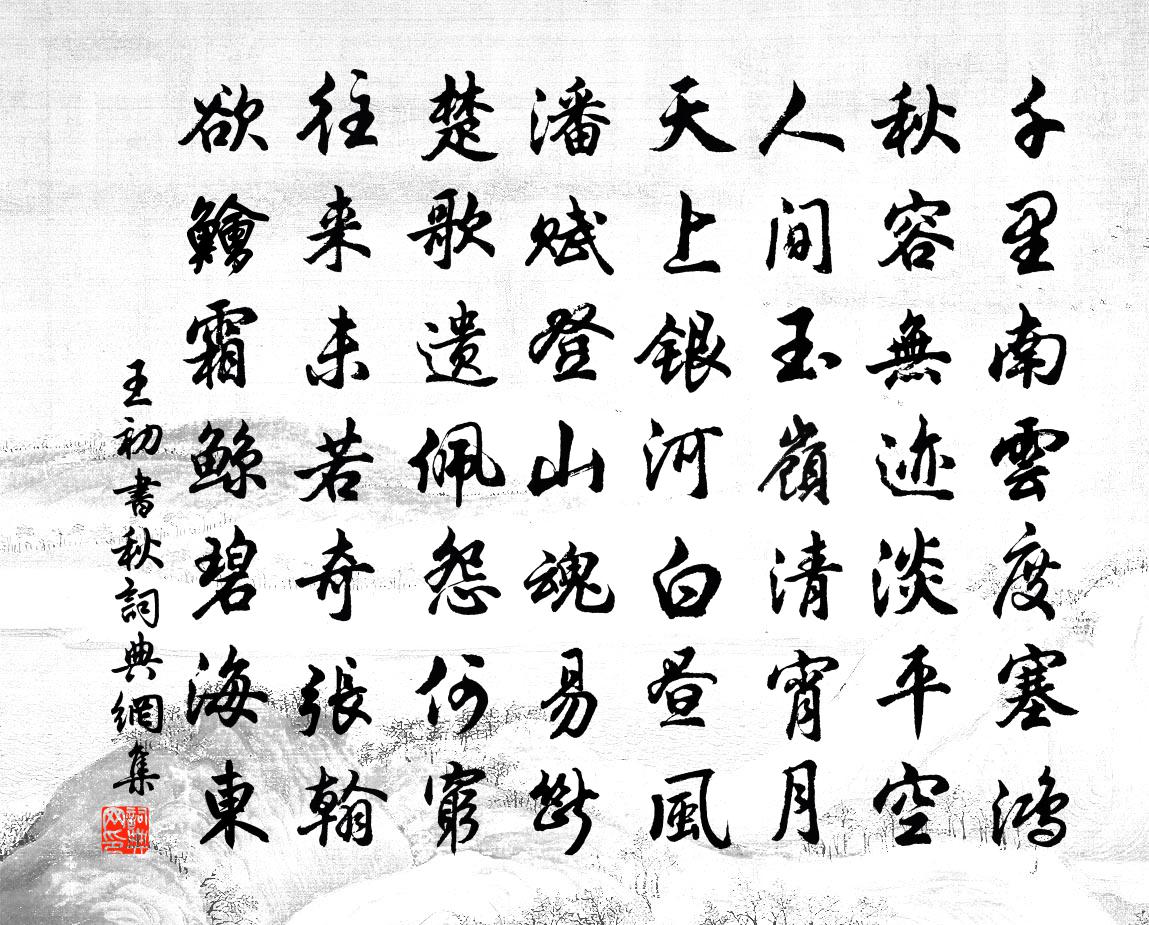 千里南雲度塞鴻
秋容無迹淡平空
人間玉嶺清宵月
天上銀河白晝風
潘賦登山魂易斷
楚歌遺佩怨何窮
往来未若奇張翰
欲鱠霜鯨碧海東
王初書秋詞典網集